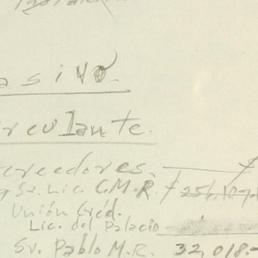 asivo.
rculante.
creedores.
Sr. Lic. C.M.R.
Unión Créd.
Lic. del Palacio
Sr. Pablo M.R. 32,018.-